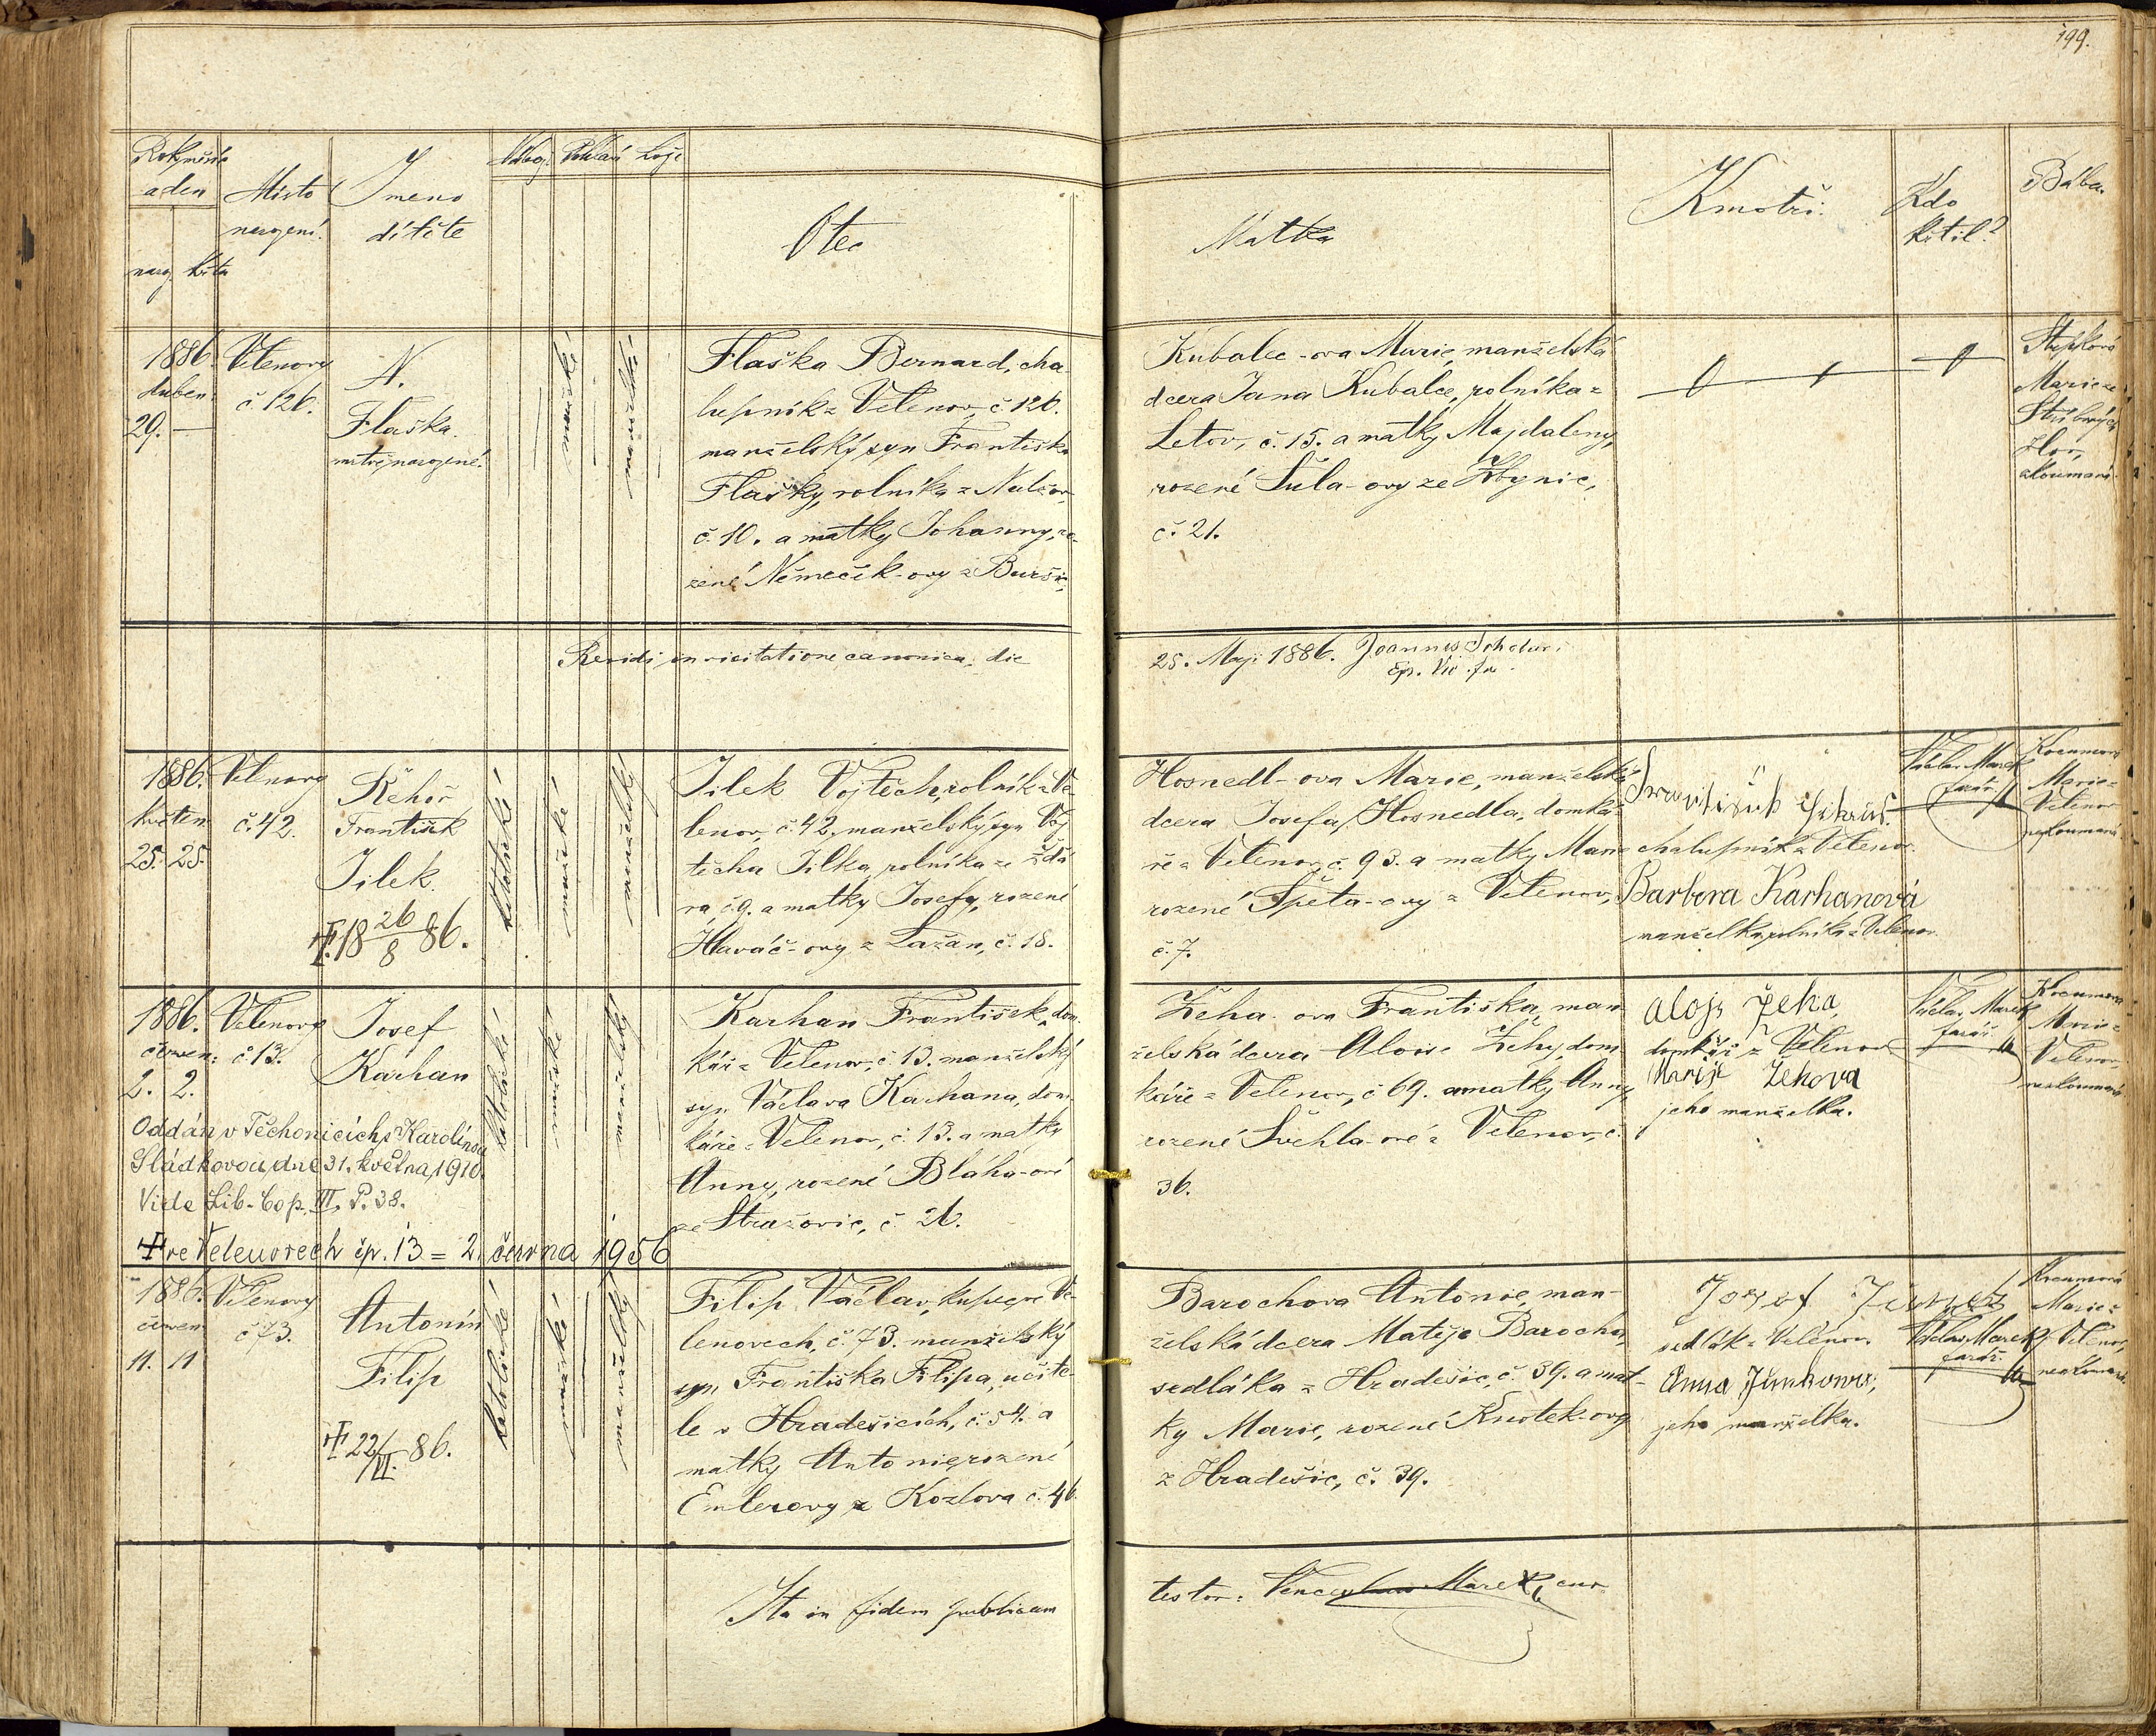 199.
Rok, měsíc
a den
nar. křtu
Místo
narození.
Jmeno
dítěte
Nábož. Pohlaví Lože
Otec
Matka
Kmotři.
Kdo
křtil?
Bába.
1886.
duben:
29. —
Velenovy
č. 126.
N.
Flaška.
mrtvě narozené.
ženské
manželské
Flaška Bernard, cha-
lupník z Velenov, č. 126.
manželský syn Františka
Flašky, rolníka z
č. 10. a matky Johanny, ro-
zené Němeček-ovy z
Kubalec-ova Marie, manželská
dcera Jana Kubalce, rolníka z
Letov, č. 15. a matky Majdaleny,
rozené Šula-ovy ze
č. 21.
Marie ze
Stříbrných
Hor,
zkoumaná.
Revidi in visitatione canonica, die
25. Maji 1886. Joannes
Ep. Vic. for.
1886.
květen
25. 25.
Velenovy
č. 42.
Řehoř
František
Jílek.
† 18 26/8 86.
katolické
mužské
manželský
Jílek Vojtěch, rolník z Ve-
lenov, č. 42. manželský syn Voj-
těcha Jílka, rolníka ze Ždá-
ra, č. 9. a matky Josefy, rozené
Hlaváč-ovy z Lažan, č. 18.
Hosnedl-ova Marie, manželská
dcera Josefa Hosnedla, domká-
ře z Velenov, č. 93. a matky Marie
rozené Špeta-ovy z Velenov,
č. 7.
chalupník z Velenov.
Barbora Karhanová
manželka rolníka z Velenov.
Václav Marek
farář.
Marie z
Velenov
nezkoumaná
1886.
červen:
2. 2.
Velenovy
č. 13.
Josef
Karhan
katolické
mužské
manželský
Oddán v Těchonicích s Karolínou
Sládkovou, dne 31. května, 1910.
Vide Lib. Cop. III. P. 38.
† ve Velenovech čp. 13 = 2. června 1956
Karhan František, dom-
kář z Velenov, č. 13. manželský
syn Václava Karhana, dom-
káře z Velenov, č. 13. a matky
Anny, rozené Bláha-ové
ze Strašovic, č. 26.
Žeha-ova Františka, man-
želská dcera Aloise Žehy, dom-
káře z Velenov, č. 69. a matky Anny
rozené Švehla-ové z Velenov, č.
36.
Alojs Žeha,
domkář z Velenov
Marije Žehova
jeho manželka.
Václav Marek
farář.
Marie z
Velenov,
nezkoumaná
1886.
červen
11. 11
Velenovy
č. 73.
Antonín
Filip
† 22/VI. 86.
katolické
mužské
manželský
Filip Václav, kupec ve Ve-
lenovech, č. 73. manželský
syn Františka Filipa, učite-
le v Hradešicích, č. 54. a
matky Antonie, rozené
Emlerovy z Kozlova č. 46.
Barochova Antonie, man-
želská dcera Matěje Barocha,
sedláka z Hradešic, č. 39. a mat-
ky Marie, rozené Knotek-ovy
z Hradešic, č. 39.
Josef
sedlák z Velenov.
Anna
jeho manželka.
Václav Marek
farář.
Marie z
Velenov,
nezkoumaná.
Ita in fidem publicam
testor: Venceslaus Marek, cur.